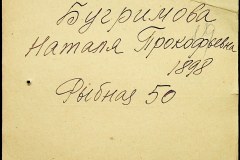 Бугримова
Наталя Прокофьевна
1898
Рыбная 50